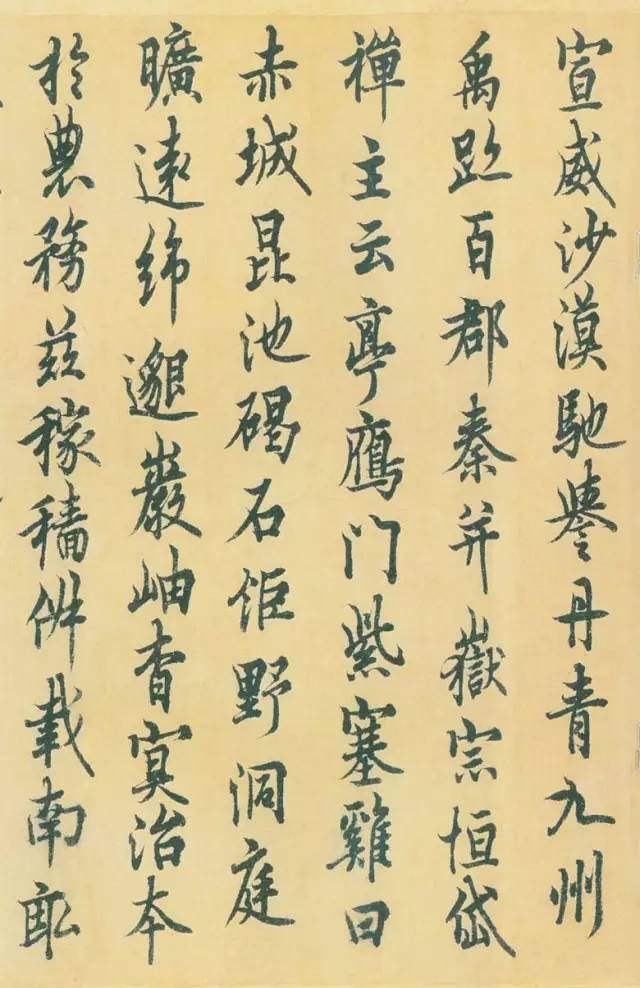 宣威沙漠馳譽丹青九州
禹跡百郡秦并嶽宗恒岱
禪主云亭鴈门紫塞雞田
赤城昆池碣石鉅野洞庭
曠遠綿邈巖岫杳冥治本
於農務茲稼穡俶載南畝